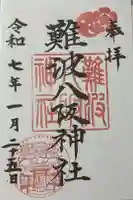 奉拝
難波八阪神社
令和七年一月二五日